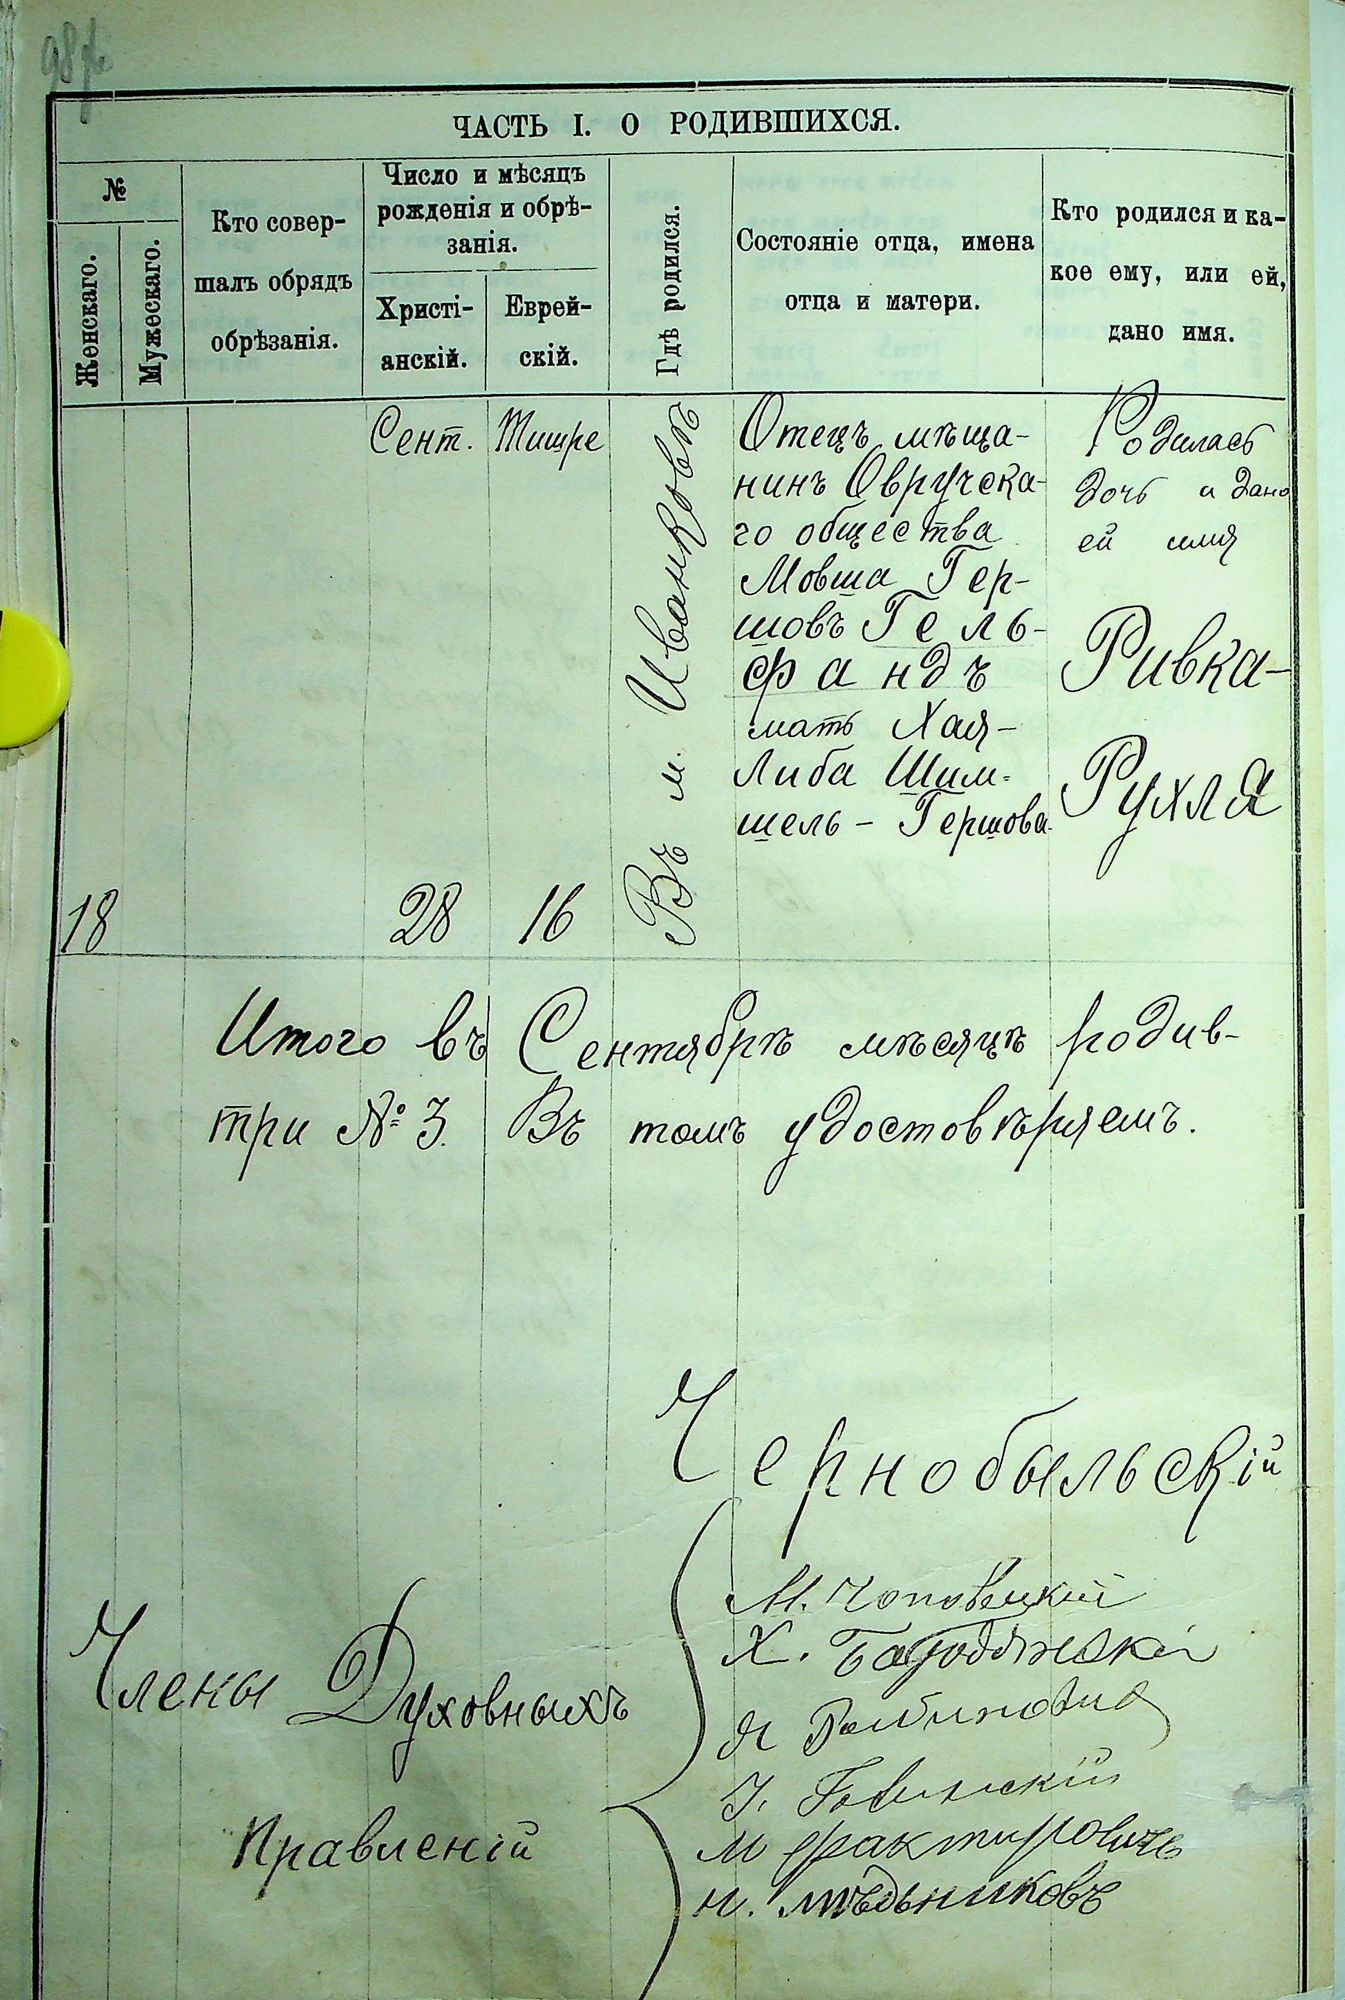 ЧАСТЬ I. О РОДИВШИХСЯ.
№
Женскаго.
Мужескаго.
Кто совер-
шалъ обрядъ
обрѣзанія.
Число и мѣсяцъ
рожденія и обрѣ-
занія.
Христі-
анскій.
Еврей-
скій.
Гдѣ родился.
Состояніе отца, имена
отца и матери.
Кто родился и ка-
кое ему, или ей,
дано имя.
18
Сент.
28
Тишре
16
Въ м. Иванковѣ
Отецъ мѣща-
нинъ Овручска-
го общества
Мовша Гер-
шовъ Гель-
фандъ
мать Хая-
Либа Шим-
шель-Гершова
Родилась
дочь и дано
ей имя
Ривка-
Рухля
Итого въ Сентябрѣ мѣсяцѣ родив-
три № 3. Въ томъ удостовѣряемъ.
Чернобыльскій
Члены Духовныхъ
Правленій
М. Чоповецкій
Х. Бородянскій
Я Рабиновичъ
М Фактировичъ
Н. Мѣдниковъ